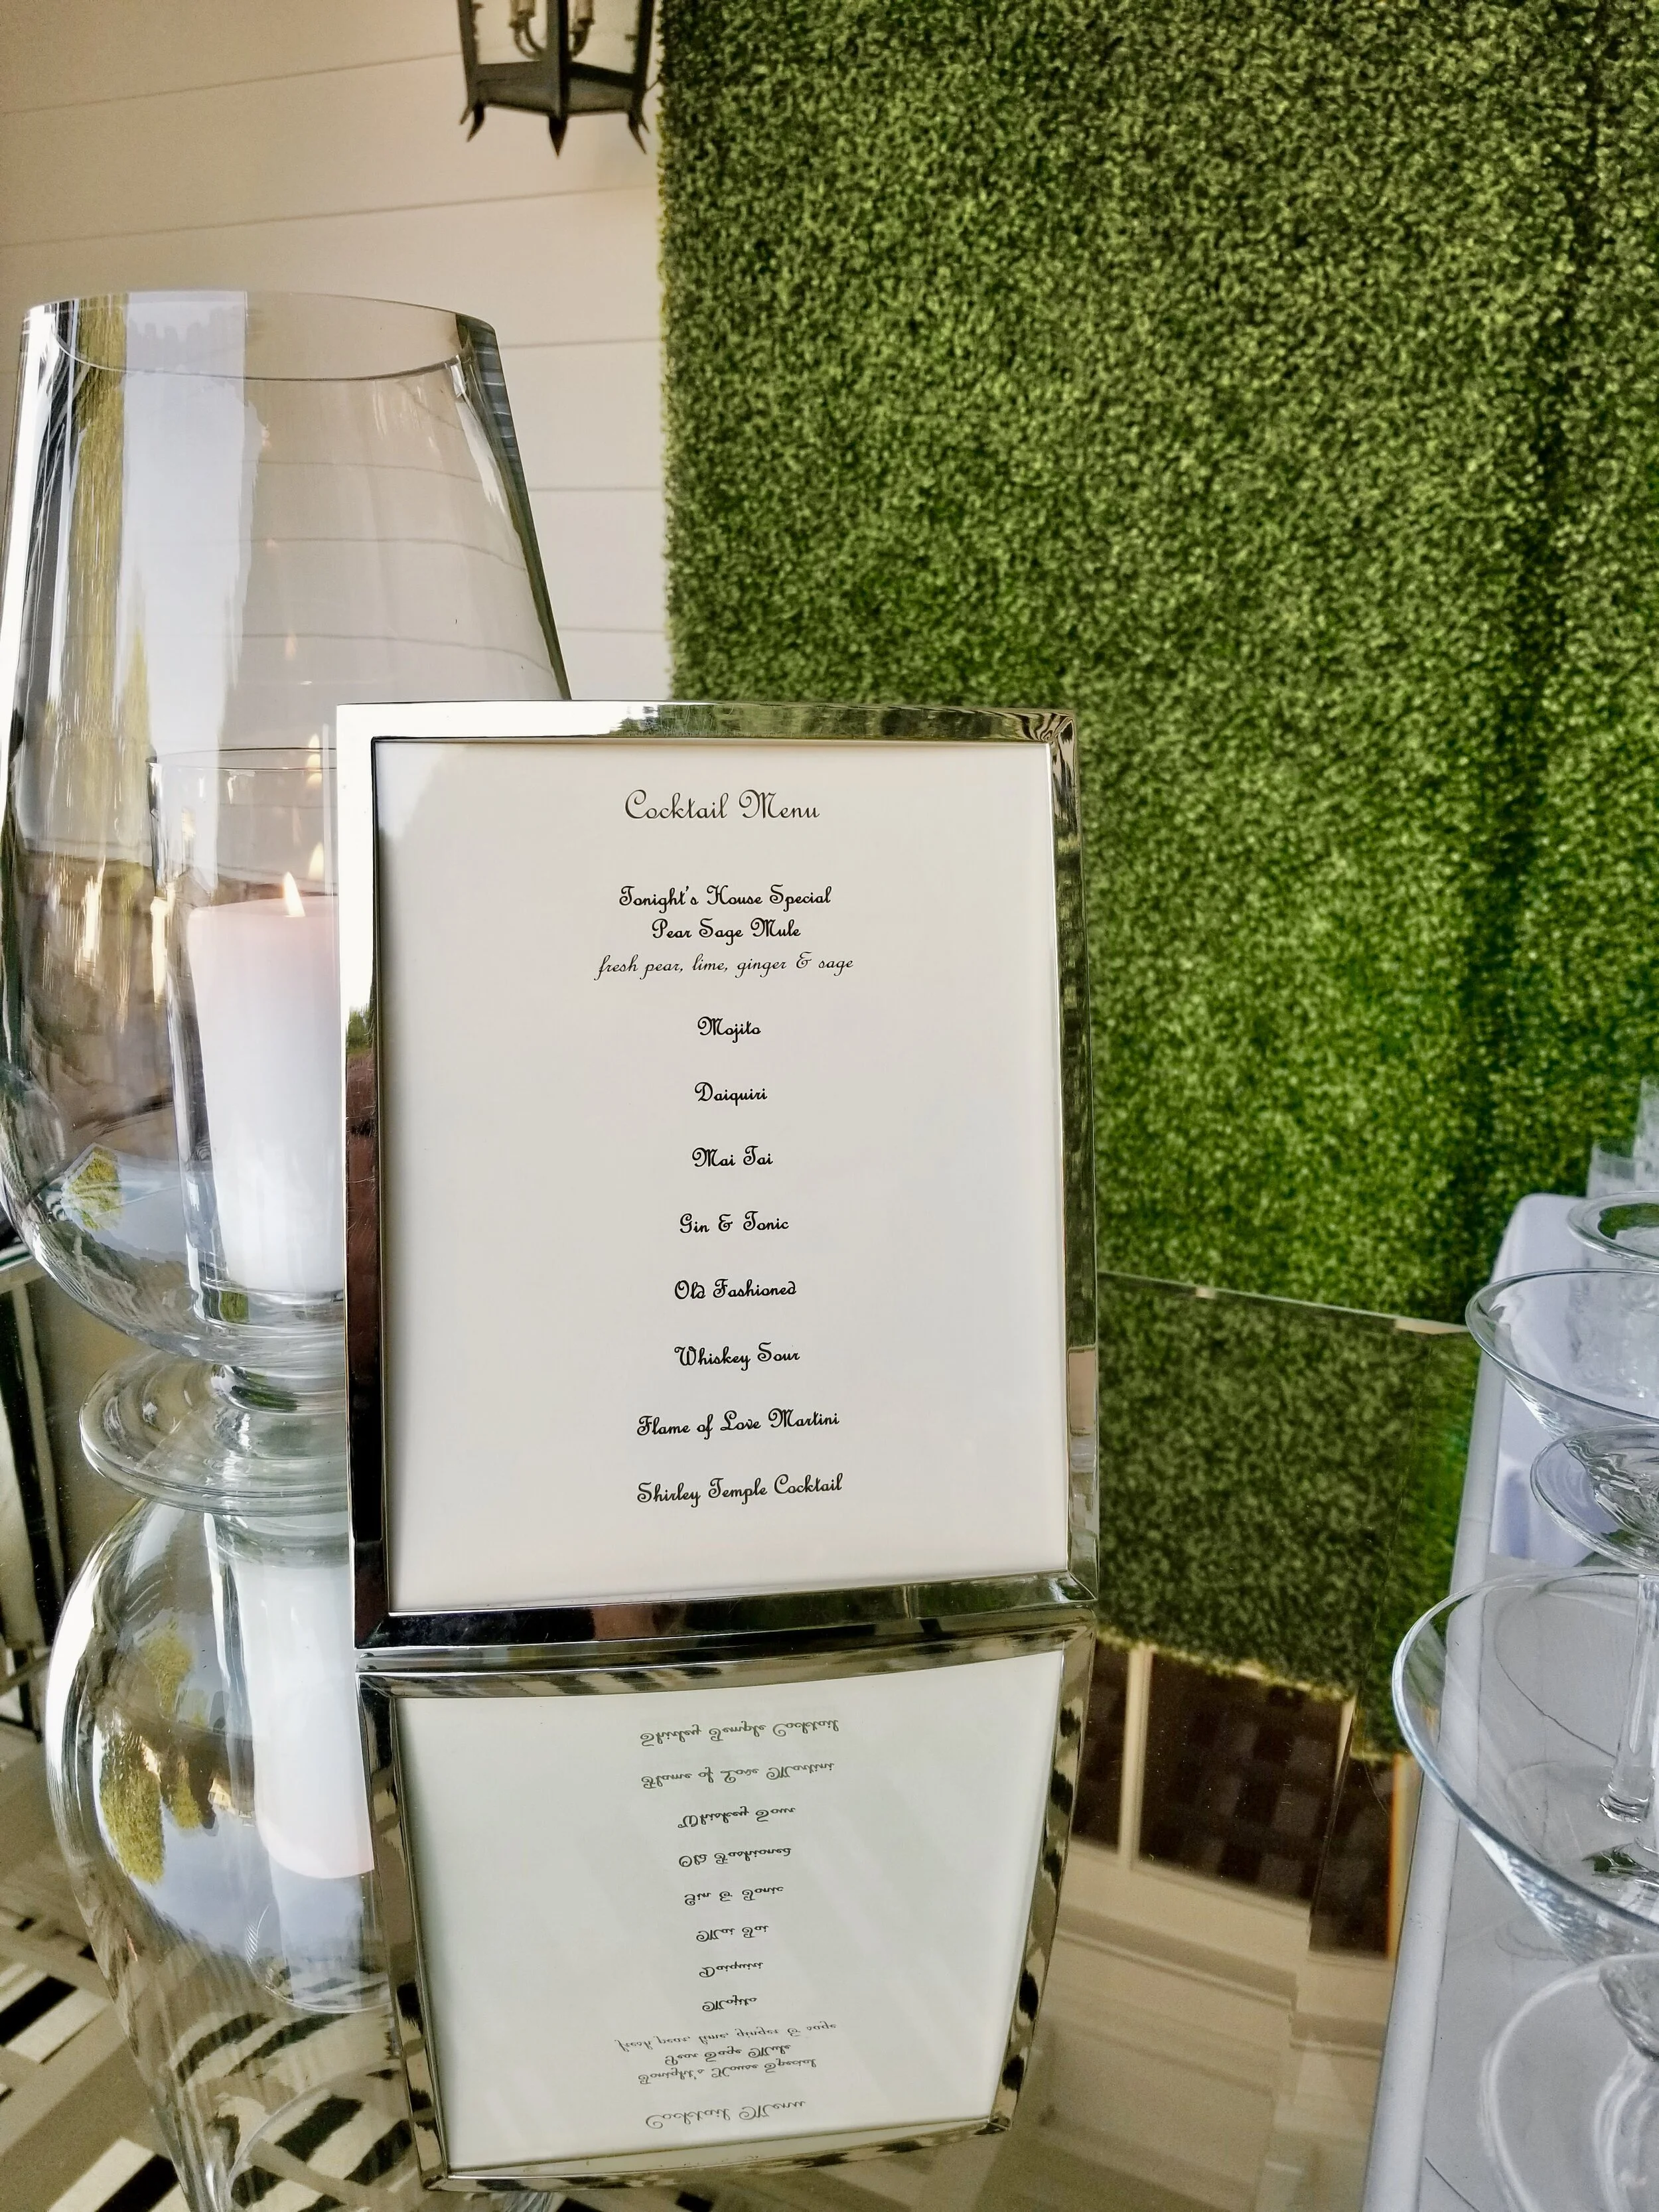 Cocktail Menu
Tonight's House Special
Pear Sage Mule
fresh pear, lime, ginger & sage
Mojito
Daiquiri
Mai Tai
Gin & Tonic
Old Fashioned
Whiskey Sour
Flame of Love Martini
Shirley Temple Cocktail